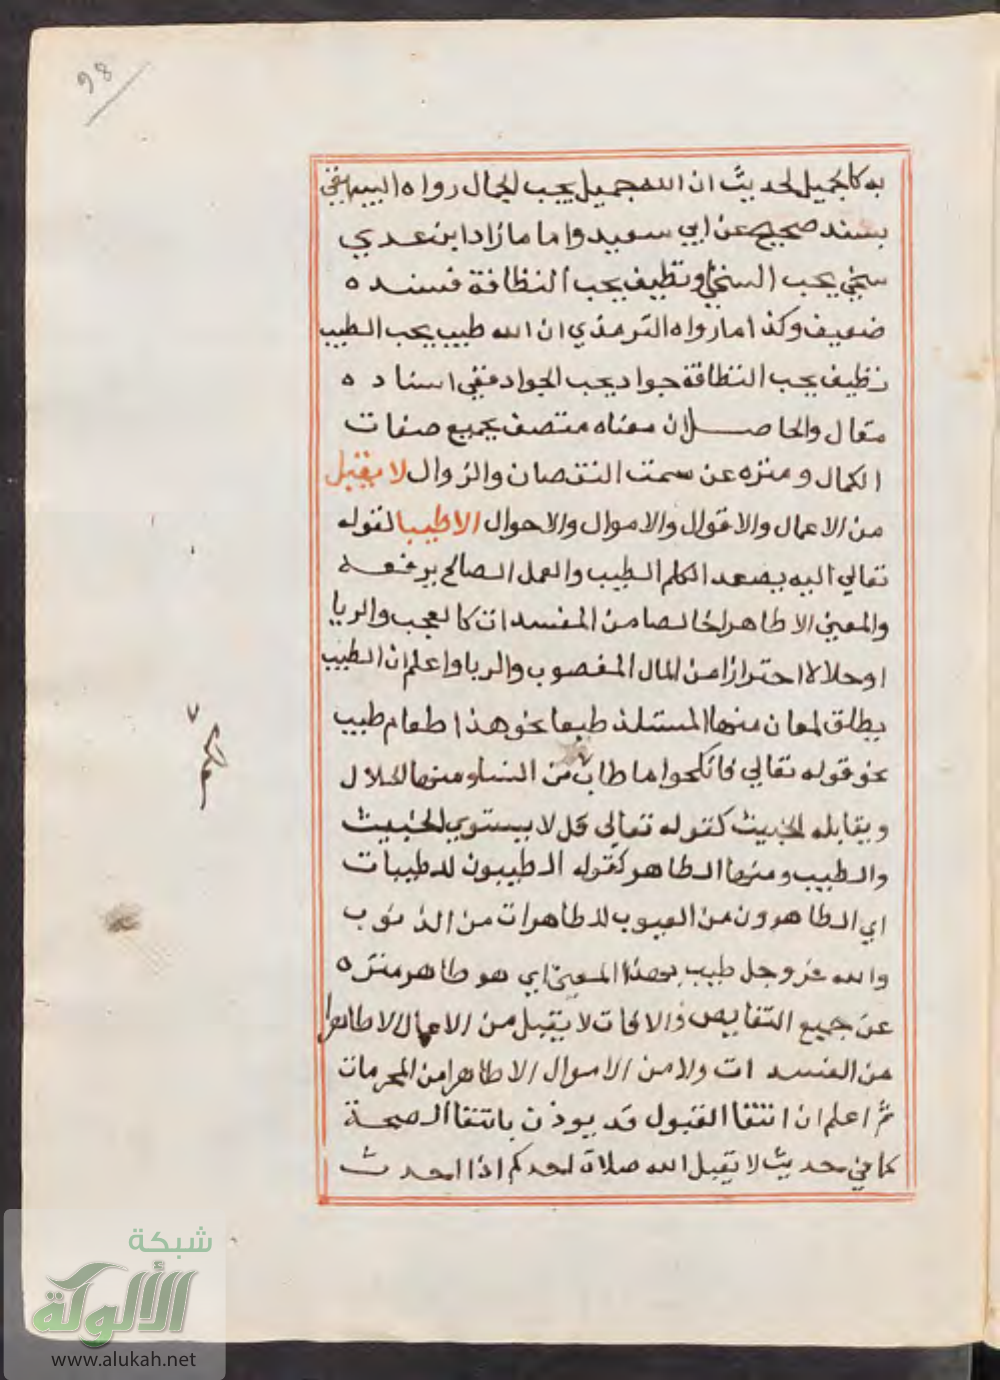 98
به كالجميل لحديث ان الله جميل يحب الجمال رواه البيهقي
بسند صحيح عن ابي سعيد واما ما زاد ابن عدي
سخي يحب السخا ونظيف يحب النظافة فسنده
ضعيف وكذا ما رواه الترمذي ان الله طيب يحب الطيب
نظيف يحب النظافة جواد يحب الجواد ففي اسناده
مقال والحاصل ان معناه متصف بجميع صفات
الكمال ومنزه عن سمت النقصان والزوال لا يقبل
من الاعمال والاقوال والاموال والاحوال الا طيبا لقوله
تعالي اليه يصعد الكلم الطيب والعمل الصالح يرفعه
والمعني الا طاهرا خالصا من المفسدات كالعجب والريا
او حلالا احترازا من المال المغصوب والربا واعلم ان الطيب
يطلق لمعان منها المستلذ طبعا نحو هذا طعام طيب
نحو قوله تعالي فانكحوا ما طاب من النسا ومنها الحلال
ويقابله الخبيث كقوله تعالي قل لا يستوي الخبيث
والطيب ومنها الطاهر كقوله الطيبون للطيبات
اي الطاهرون من العيوب للطاهرات من الذنوب
والله عز وجل طيب بهذا المعني اي هو طاهر منزه
عن جميع النقايص والافات لا يقبل من الاعمال الا طاهرا
من المفسدات ولا من الاموال الا طاهرا من المحرمات
ثم اعلم ان انتفا القبول قد يوذن بانتفا الصحة
كما في حديث لا يقبل الله صلاة احدكم اذا احدث
شبكة
الألوكة
www.alukah.net